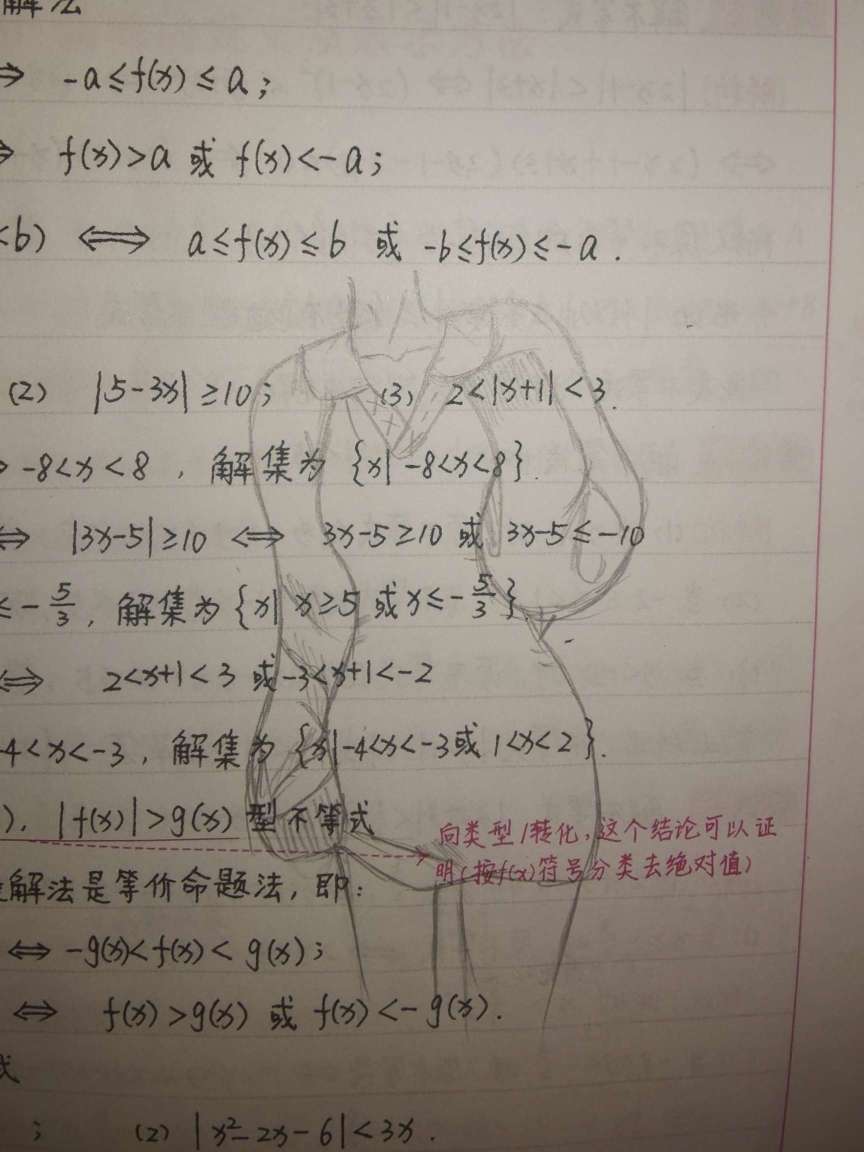 解法
⇒ -a≤f(x)≤a;
⇒ f(x)>a 或 f(x)<-a;
<b) ⟺ a≤f(x)≤b 或 -b≤f(x)≤-a.
(2) |5-3x|≥10; (3) 2<|x+1|<3.
⇒ -8<x<8, 解集为{x|-8<x<8}.
⟺ |3x-5|≥10 ⟺ 3x-5≥10 或 3x-5≤-10
≤-5/3, 解集为{x|x≥5或x≤-5/3}.
⟺ 2<x+1<3 或 -3<x+1<-2
-4<x<-3, 解集为{x|-4<x<-3或1<x<2}.
). |f(x)|>g(x)型不等式
向类型1转化, 这个结论可以证
明(按f(x)符号分类去绝对值)
解法是等价命题法, 即:
⟺ -g(x)<f(x)<g(x);
⟺ f(x)>g(x) 或 f(x)<-g(x).
式
; (2) |x²-2x-6|<3x.